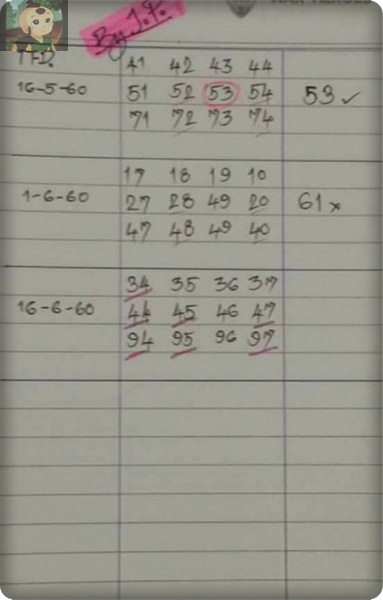 By J.P.
TFD. 41 42 43 44
16-5-60 51 52 53 54 53 ✓
71 72 73 74
17 18 19 10
1-6-60 27 28 49 20 61 ×
47 48 49 40
34 35 36 37
16-6-60 44 45 46 47
94 95 96 97